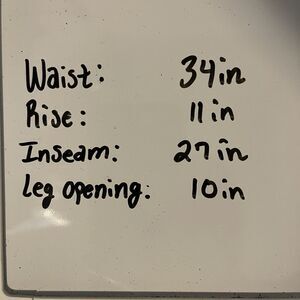 Waist: 34in
Rise: 11in
Inseam: 27in
Leg opening: 10in